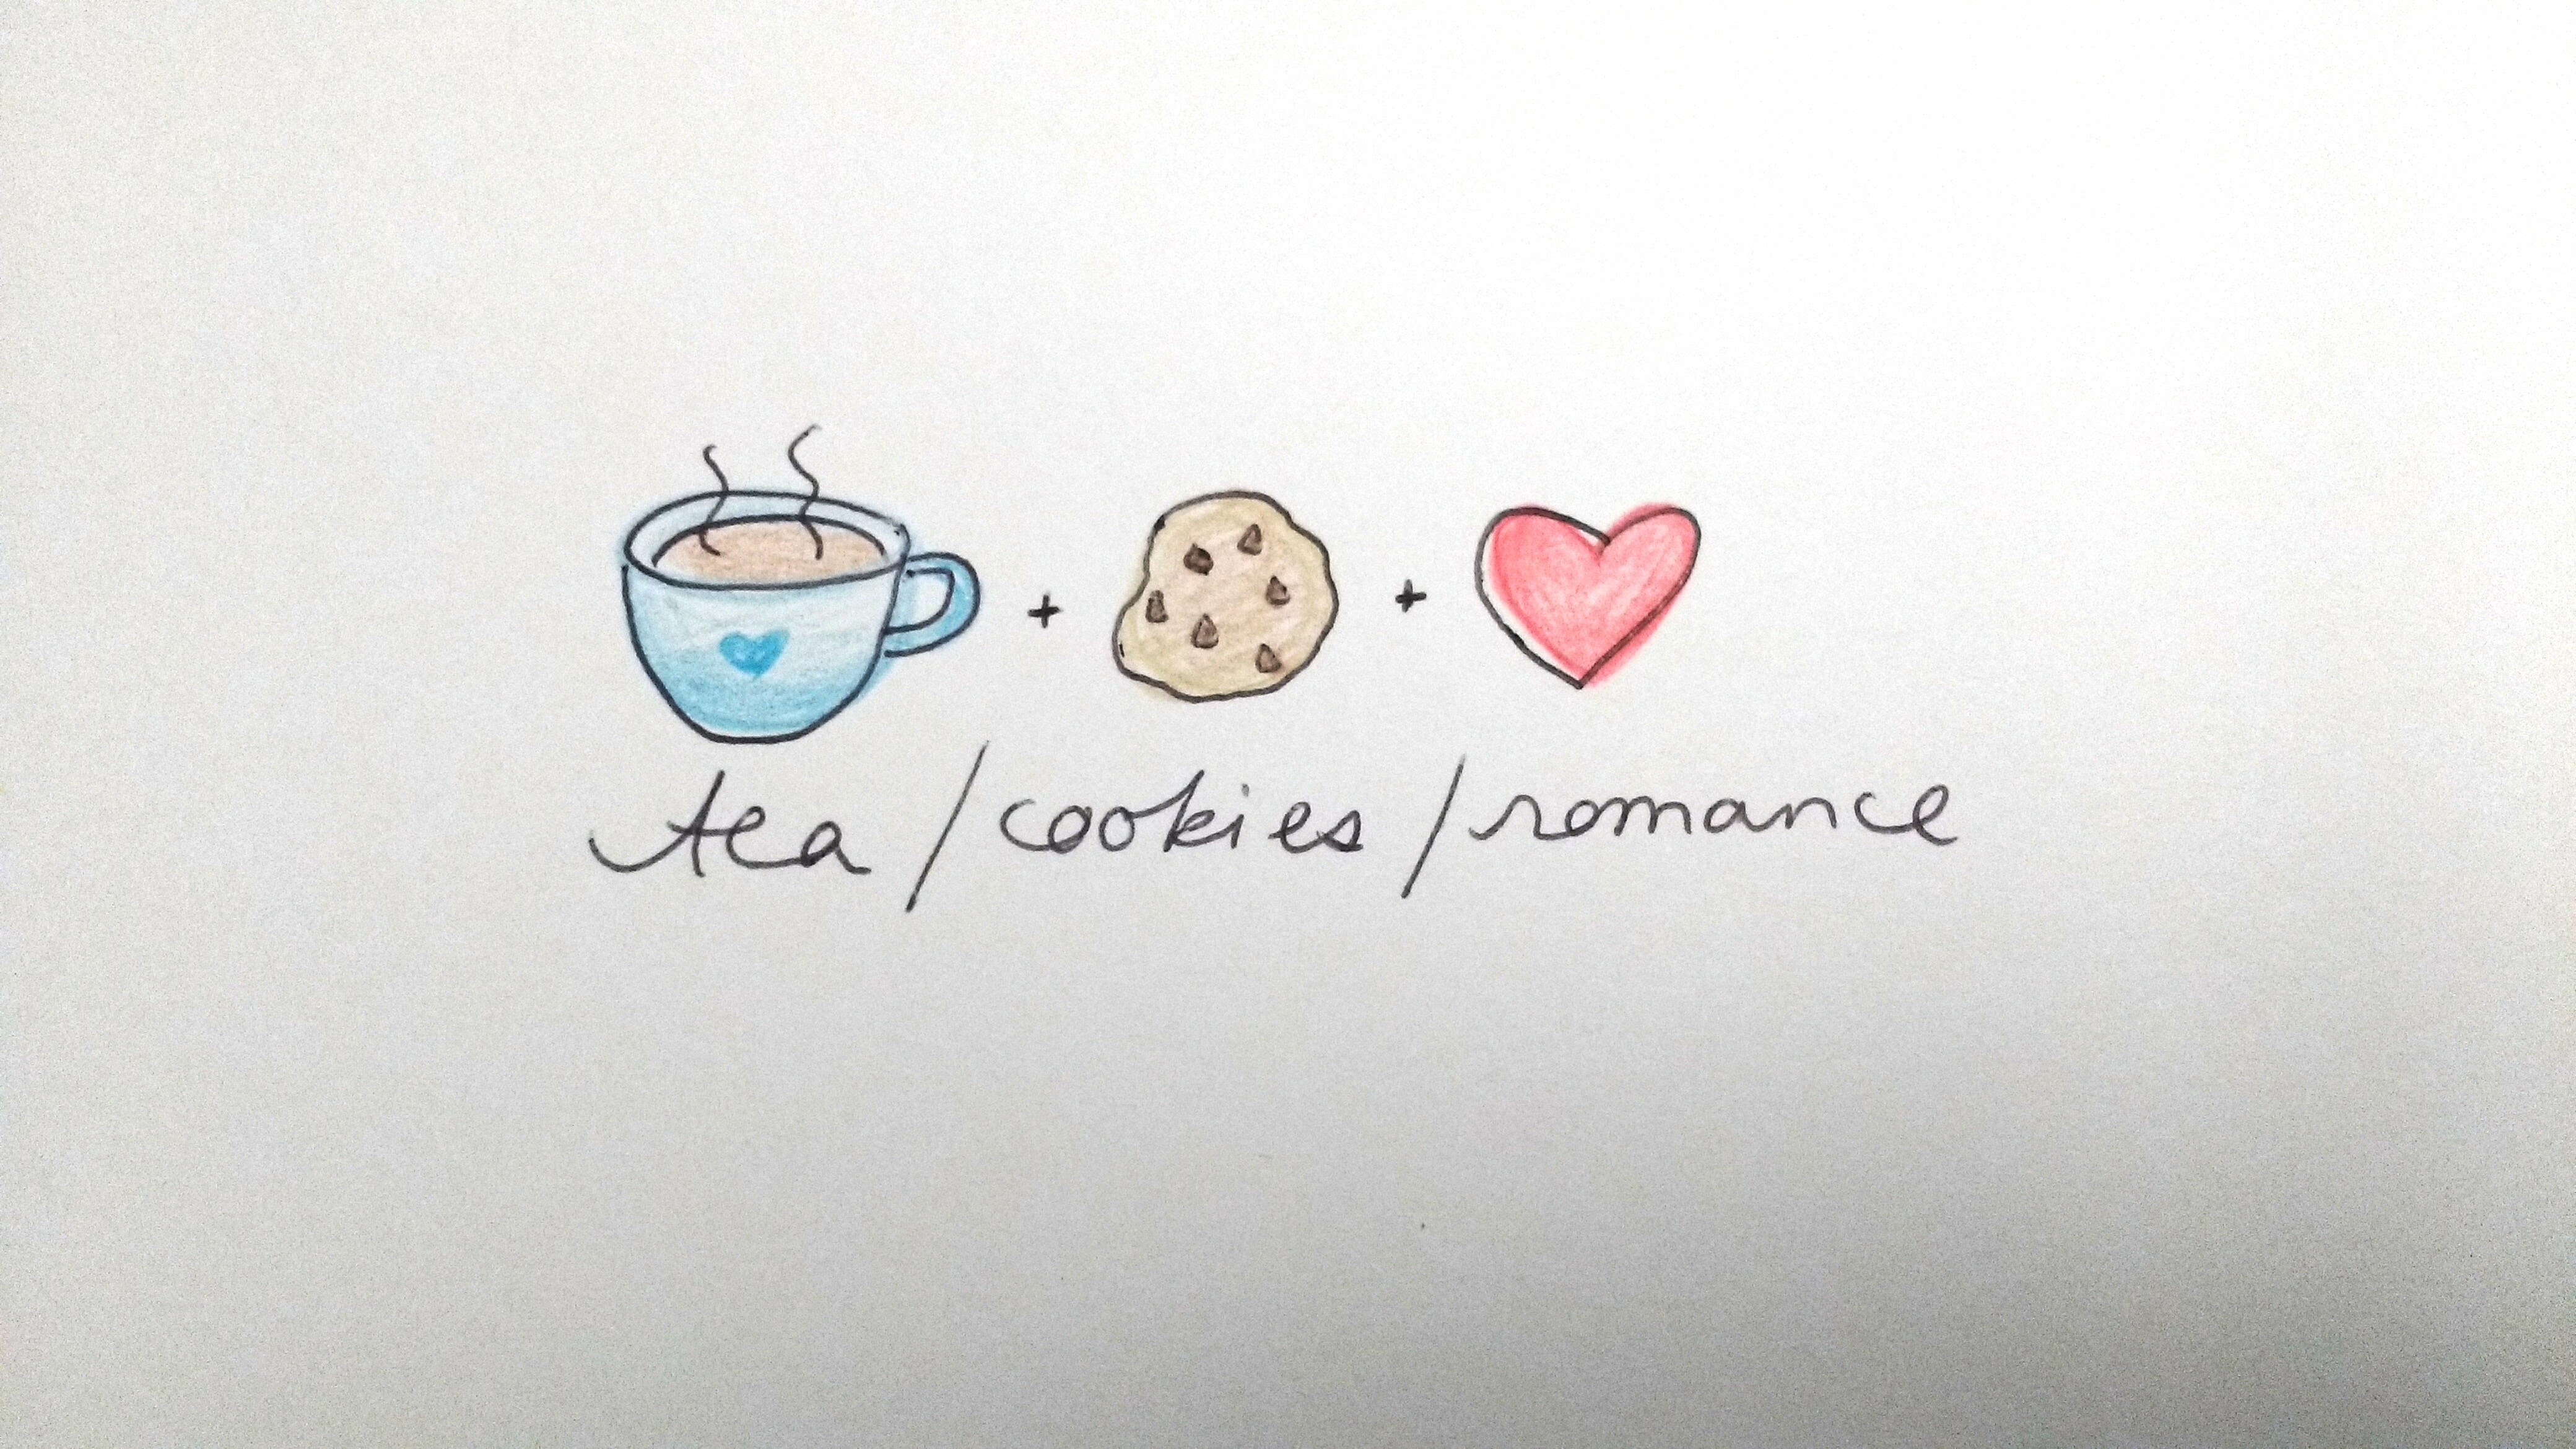 + +
tea / cookies / romance